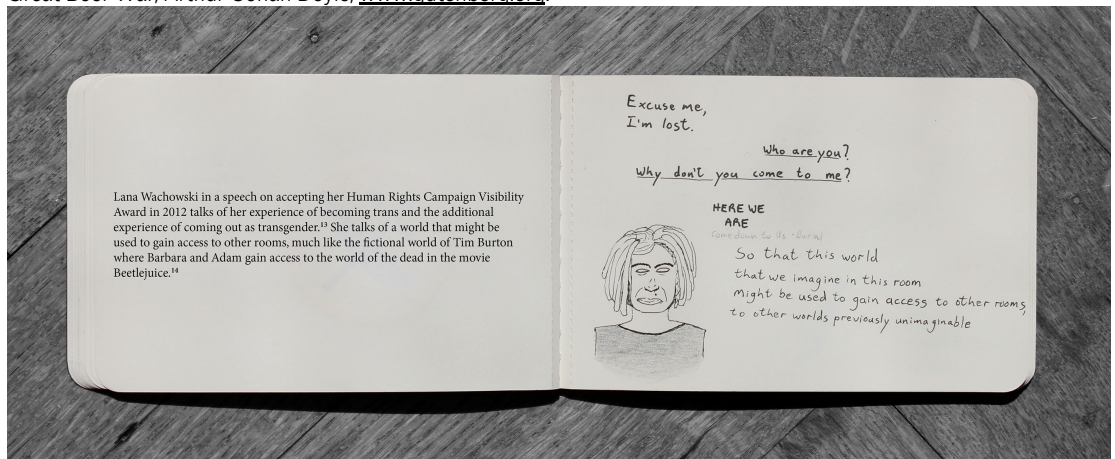 Great Boer War, Arthur Conan Doyle, www.gutenberg.org.
Lana Wachowski in a speech on accepting her Human Rights Campaign Visibility
Award in 2012 talks of her experience of becoming trans and the additional
experience of coming out as transgender.¹³ She talks of a world that might be
used to gain access to other rooms, much like the fictional world of Tim Burton
where Barbara and Adam gain access to the world of the dead in the movie
Beetlejuice.¹⁴
Excuse me,
I'm lost.
Who are you?
Why don't you come to me?
HERE WE
ARE
come down to us
So that this world
that we imagine in this room
might be used to gain access to other rooms,
to other worlds previously unimaginable